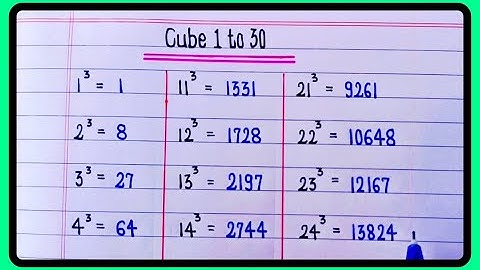 Cube 1 to 30
1³ = 1 11³ = 1331 21³ = 9261
2³ = 8 12³ = 1728 22³ = 10648
3³ = 27 13³ = 2197 23³ = 12167
4³ = 64 14³ = 2744 24³ = 13824